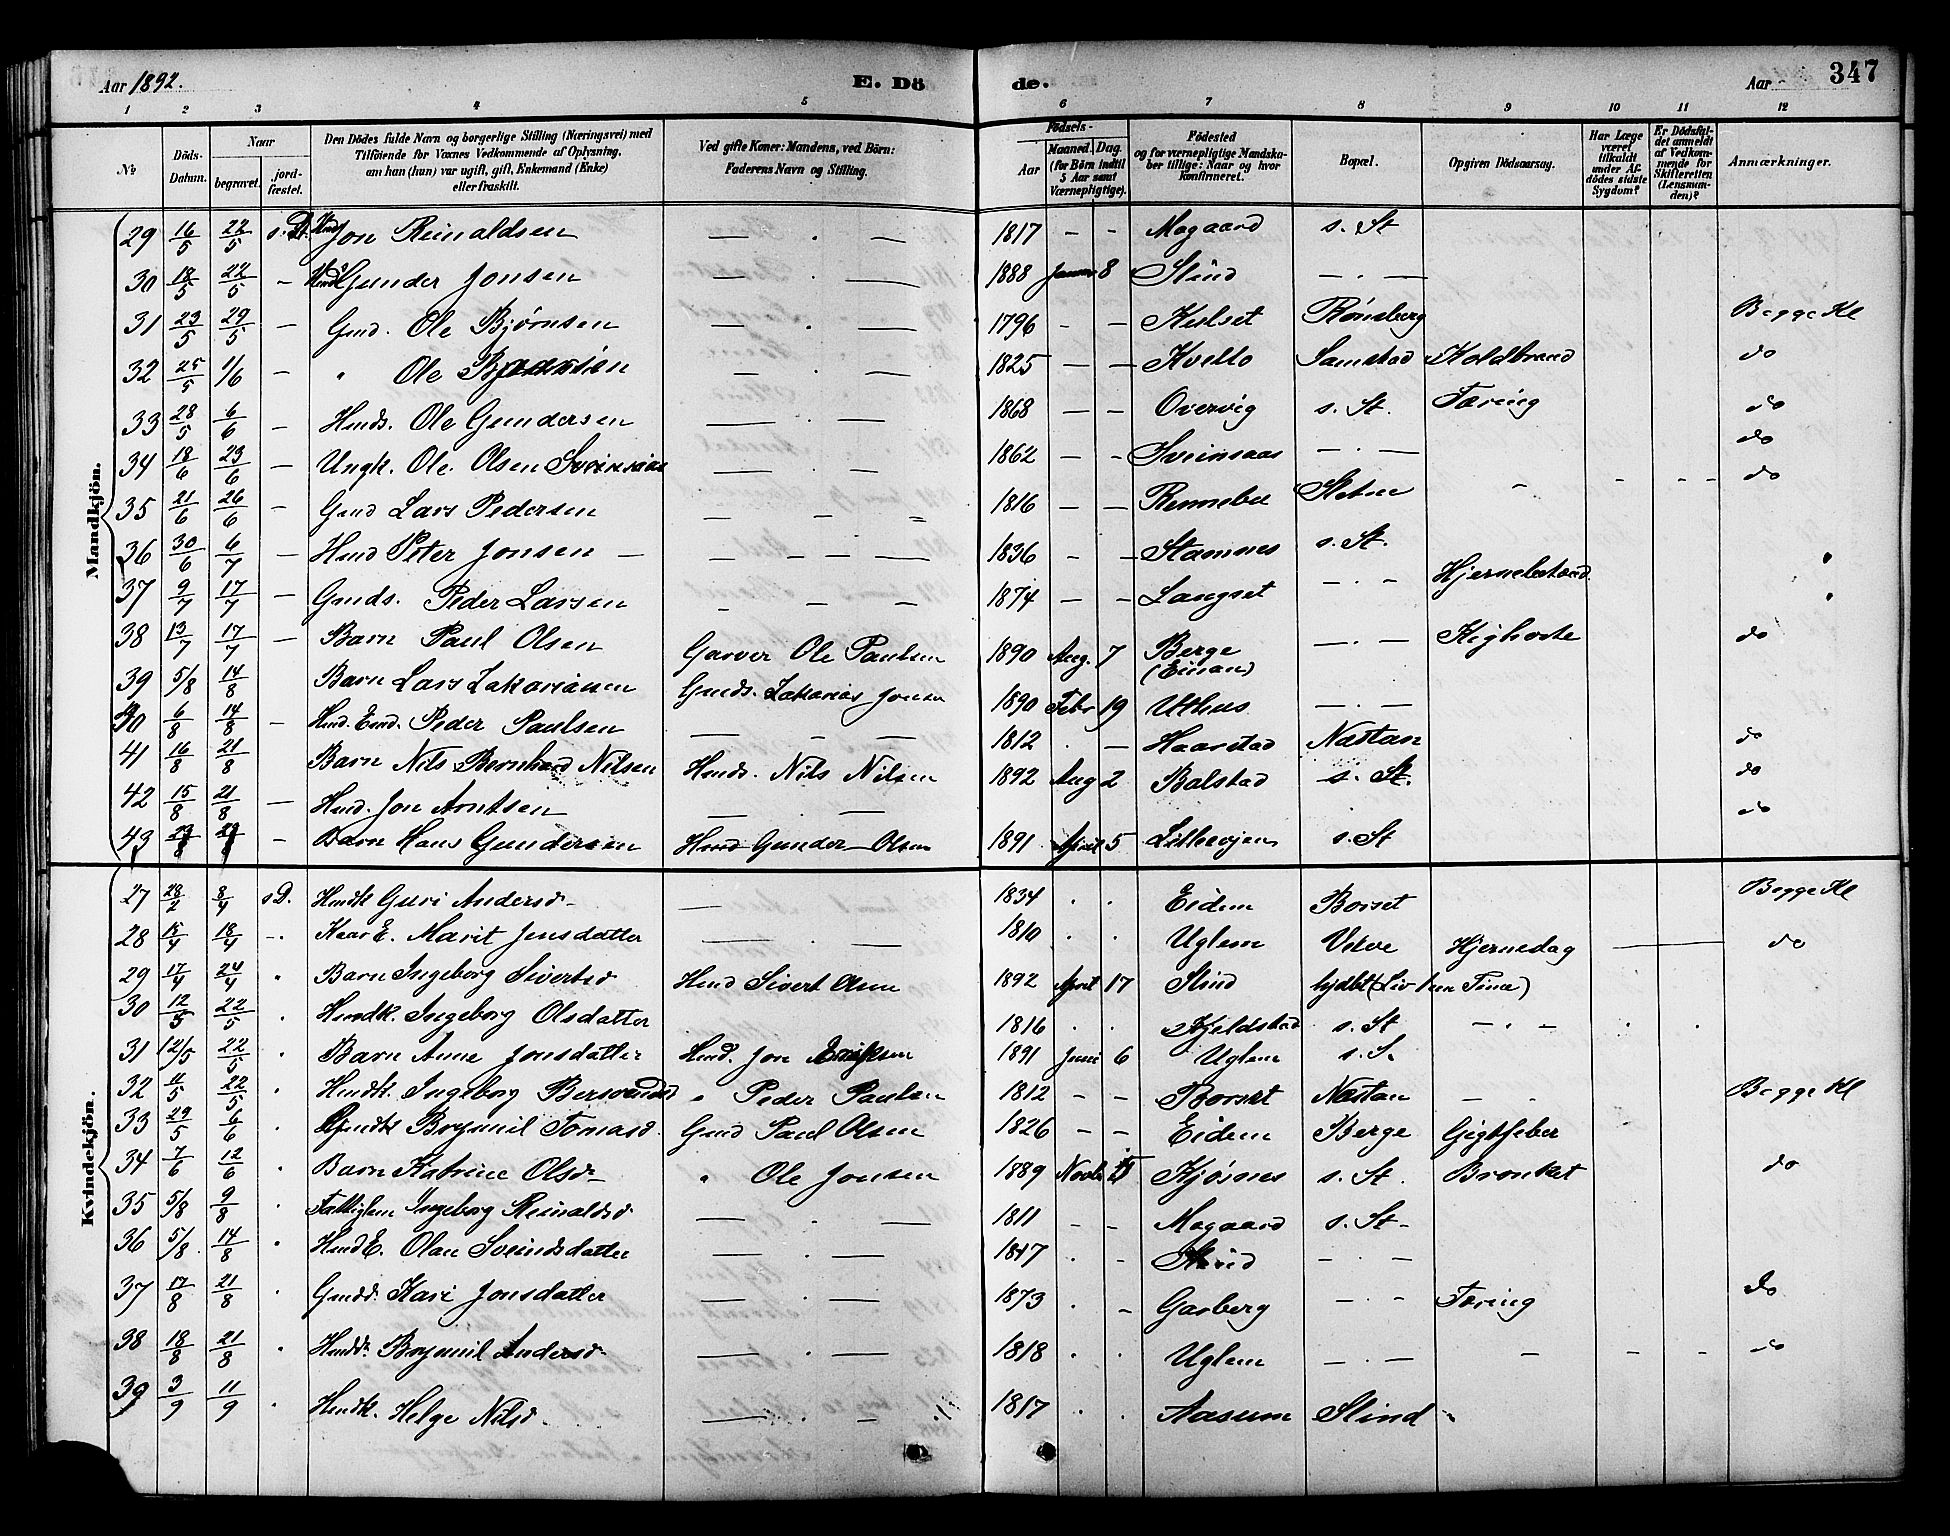 Aar 1892.
E. Dö de.
Aar
347
1 2 3 4 5 6 7 8 9 10 11 12
No
Döds-Datum.
Naar
begravet.
jord-fæstet.
Den Dödes fulde Navn og borgerlige Stilling (Næringsvei) med Tilföiende for Voxnes Vedkommende af Oplysning, om han (hun) var ugift, gift, Enkemand (Enke) eller fraskilt.
Ved gifte Koner: Mandens, ved Börn: Faderens Navn og Stilling.
Födsels-
Aar
Maaned. Dag.
(for Börn indtil 5 Aar samt Værnepligtige).
Födested og for værnepligtige Mandskaber tillige: Naar og hvor konfirmeret.
Bopæl.
Opgiven Dödsaarsag.
Har Læge været tilkaldt under Afdödes sidste Sygdom?
Er Dödsfaldet anmeldt af Vedkommende for Skifteretten (Lensmanden)?
Anmærkninger.
Mandkjön.
29 16/5 22/5 s. D. Hmd Jon Reinaldsen — . — 1817 - - Mogaard s. St
30 18/5 22/5 - Gunder Jonsen — . — 1888 8 Slind — . —
31 23/5 29/5 - Gmd. Ole Bjørnsen — . — 1796 - - Kulset Rønsberg Begge Kl
32 25/5 1/6 - " Ole — . — 1825 - - Kvello Samstad Koldbrand do
33 28/5 6/6 - Hmds. Ole Gundersen — . — 1868 - - Overvig s. St. Tæring do
34 18/6 23/6 - Ungk. Ole Olsen — . — 1862 - - Sveinsaas — . — do
35 21/6 26/6 - Gmd Lars Pedersen — — — 1816 - - Rennebu Sletne - - - - do
36 30/6 6/7 - Hmd Peter Jonsen - — — — 1836 - - Stamnes s. St.
37 9/7 17/7 - Gmds. Peder Larsen — — — 1874 - - Langset — . - Hjernebetænd.
38 13/7 17/7 - Barn Paul Olsen Garver Ole Paulsen 1890 Aug. 7 Berge (Einan) — . — Kighoste do
39 5/8 14/8 Barn Lars Zakariasen Gmds. Zakarias Jonsen 1890 Febr 19 Uthus — . —
40 6/8 14/8 - Hmd. Peder Paulsen — . — 1812 . - Haarstad Nastan do
41 16/8 21/8 Barn Nils Bernhard Nilsen Hmds. Nils Nilsen 1892 Aug 2 Balstad s. St. do
42 15/8 21/8 - Hmd. Jon Arntsen — . — do
43 - Barn Hans Gundersen Hmd Gunder Olsen 1891 April 5 Lillevjen s. St
Kvindekjön.
27 28/2 8/4 s D. Hmdk Guri Andersd - — 1834 . . Eidem Borset Begge Kl
28 15/4 18/4 -. Kaar E. Marit Jensdatter — . — 1810 . . Uglem Velve Hjerneslag — do
29 17/4 24/4 " Barn Ingeborg Sivertsd Hmd Sivert Olsen 1892 April 17 Slind hjdbt (Liv 1 een Time)
30 12/5 22/5 . Hmdk. Ingeborg Olsdatter 1816 . . Kjeldstad s. St - . - . .
31 12/5 22/5 " Barn Anne Jonsdatter Hmd. Jon 1891 Juni 6 Uglem s. S.
32 11/5 22/5 " Hmdk. Ingeborg " Peder Paulsen 1812 - - Borset Nastan - . Begge Kl
33 29/5 6/6 . Gmdk Brynnil Tomasd. Gmd Paul Olsen 1826 - - Eidem Berge Gigtfeber
34 7/6 12/6 " Barn Katrine Olsd - " Ole Jonsen 1889 Kjøsnes s. St. Bronket do
35 5/8 9/8 . Fattiglem Ingeborg Reinaldsd — . — 1811 - - Mogaard s. St -
36 5/8. 14/8 . Hmd E. Olau Sveindsdatter — . — 1817 . - — . —
37 17/8 21/8 . Gmdd. Kari Jonsdatter — . — 1873 . - Garberg — . - Tæring do
38 18/8 21/8 . Brynnil Andersd. — . — 1818 . . Uglem — . — - - - do
39 3/9 11/9 . Hmdk. Helge Nilsd. — . - 1817 . . Aasum Slind